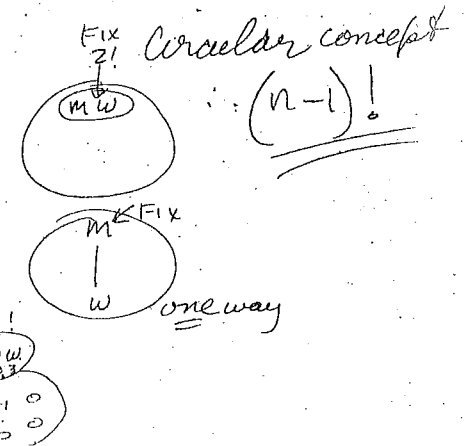 Fix
2!
Circular concept
m w
∴ (n-1)!
m Fix
w
one way
!
w.